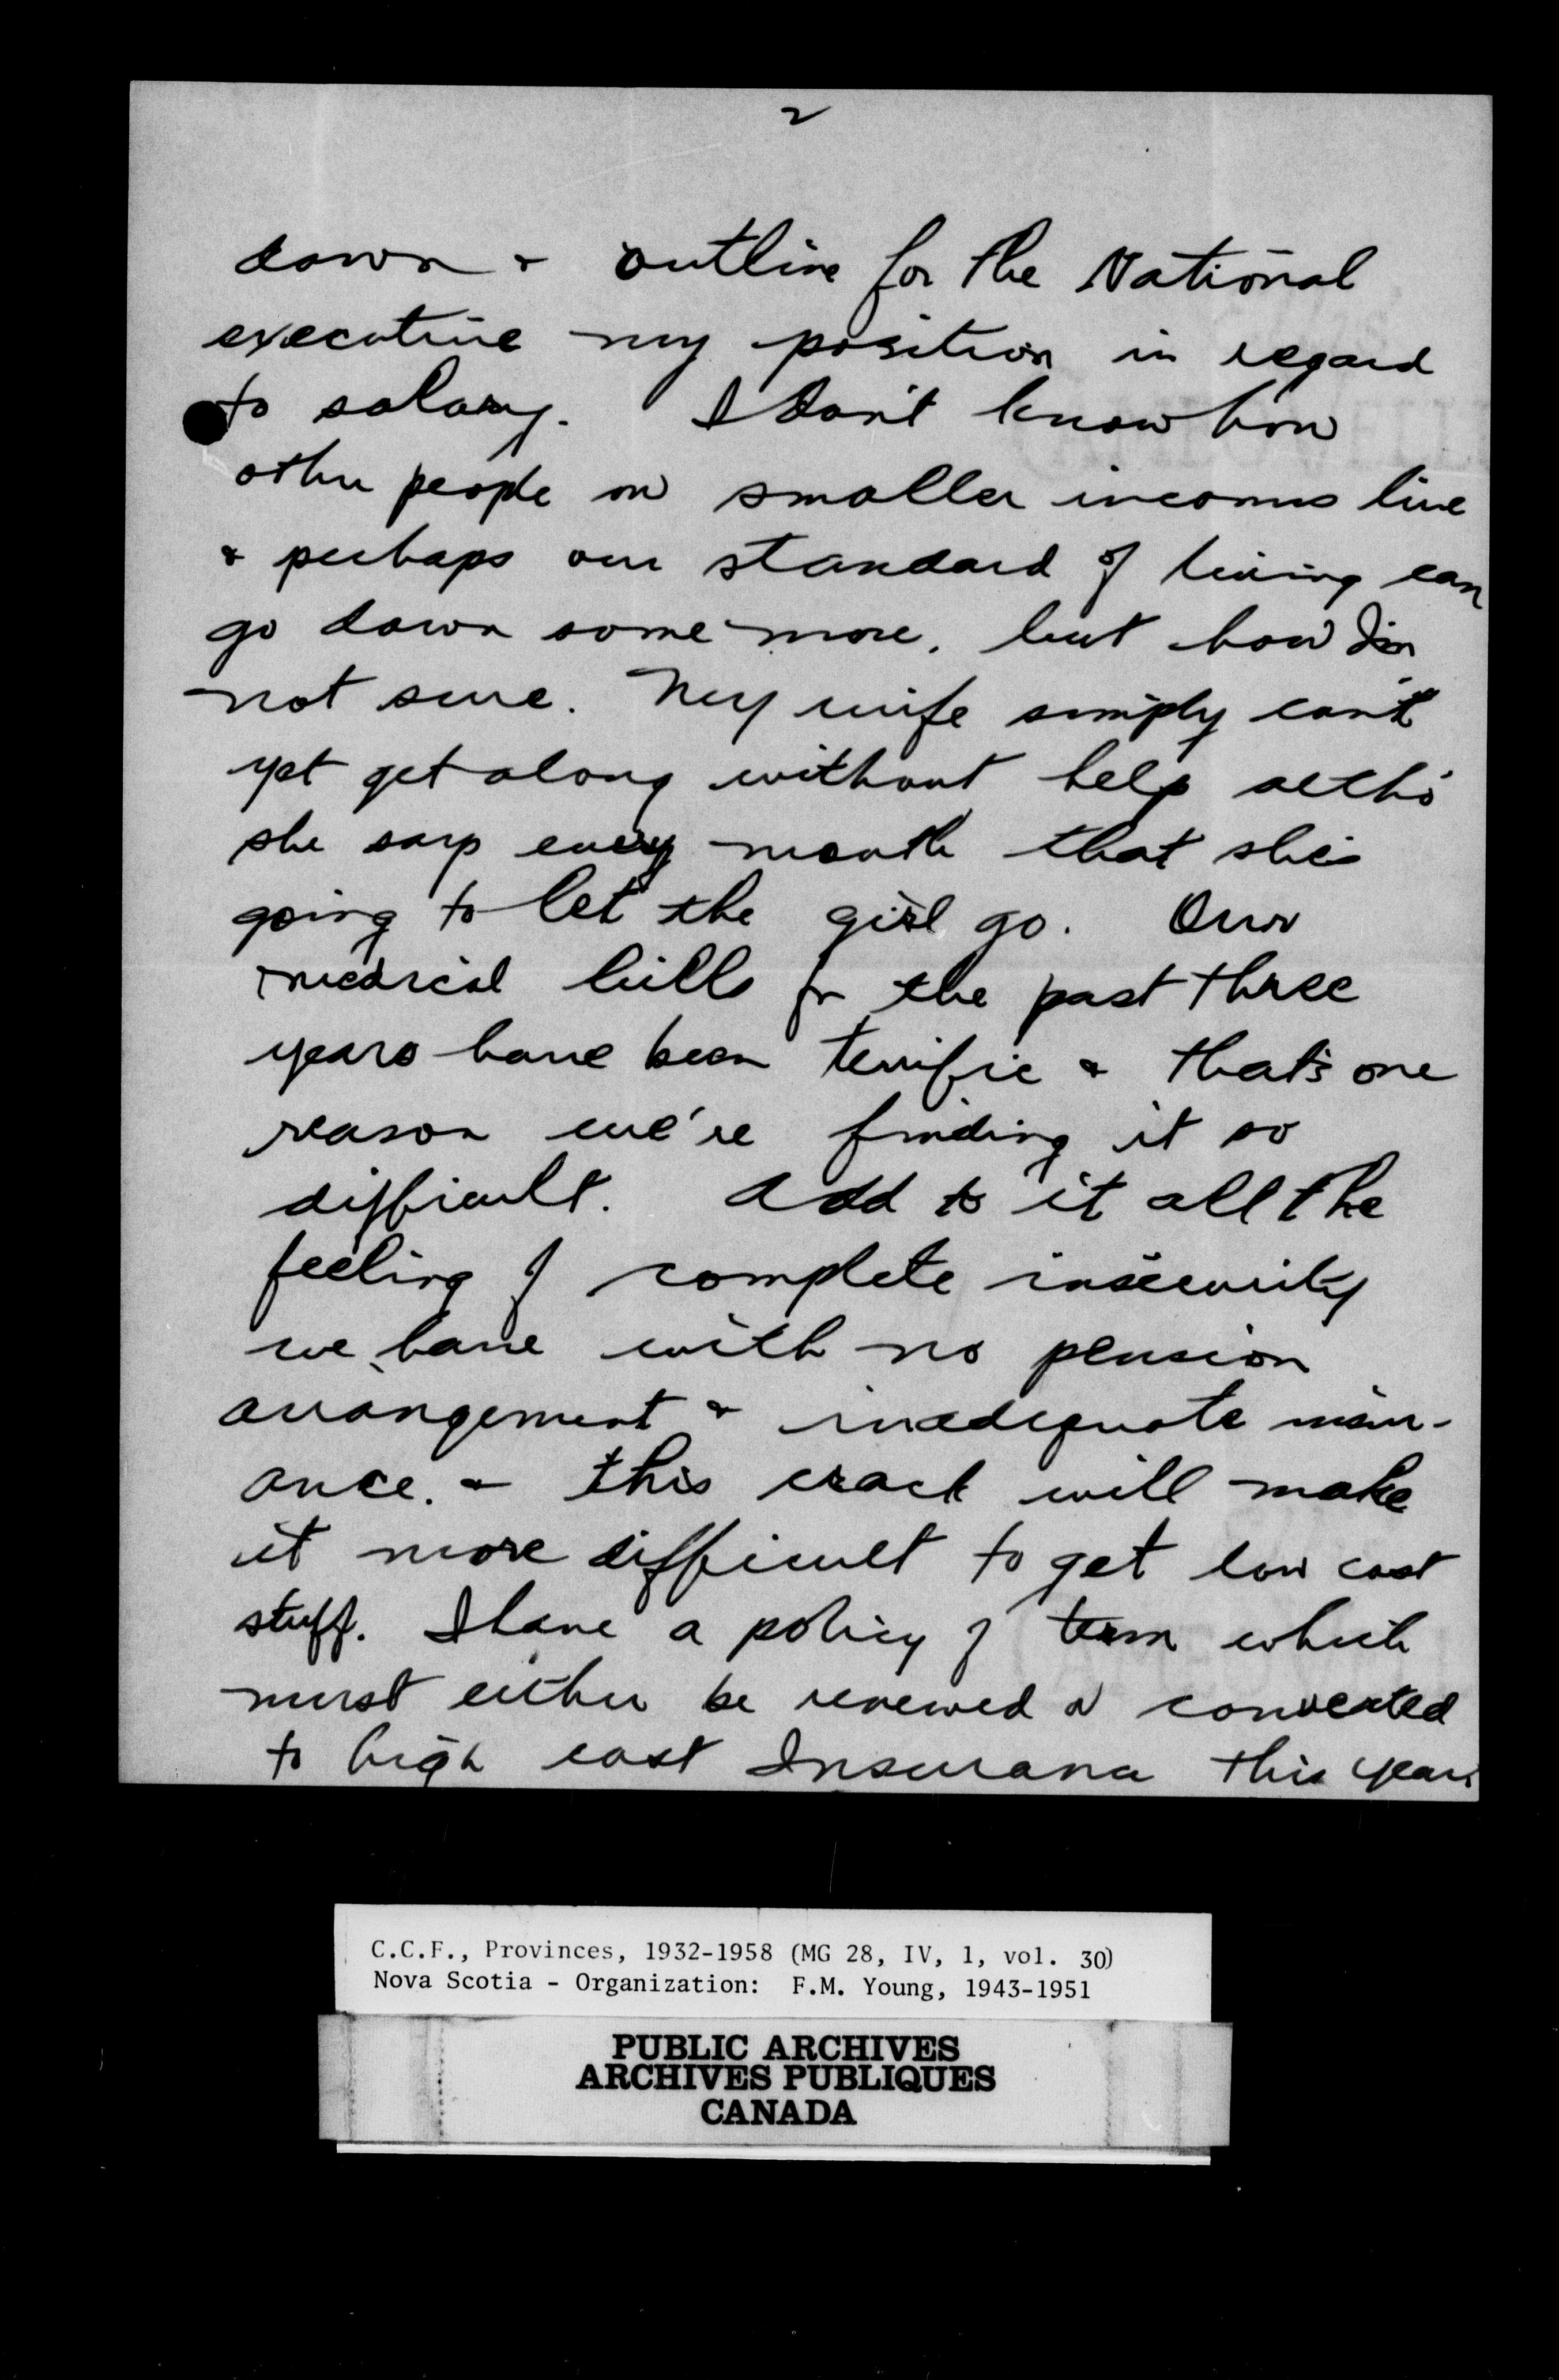 2
down & outline for the National
executive my position in regard
to salary. I don't know how
other people on smaller incomes live
& perhaps our standard of living can
go down some more, but how I'm
not sure. My wife simply can't
yet get along without help altho'
she says every month that she's
going to let the girl go. Our
medical bills for the past three
years have been terrific & that's one
reason we're finding it so
difficult. Add to it all the
feeling of complete insecurity
we have with no pension
arrangement & inadequate insur-
ance. & this crack will make
it more difficult to get low cost
stuff. I have a policy of term which
must either be renewed or converted
to high cost Insurance this year.
C.C.F., Provinces, 1932-1958 (MG 28, IV, 1, vol. 30)
Nova Scotia - Organization: F.M. Young, 1943-1951
PUBLIC ARCHIVES
ARCHIVES PUBLIQUES
CANADA